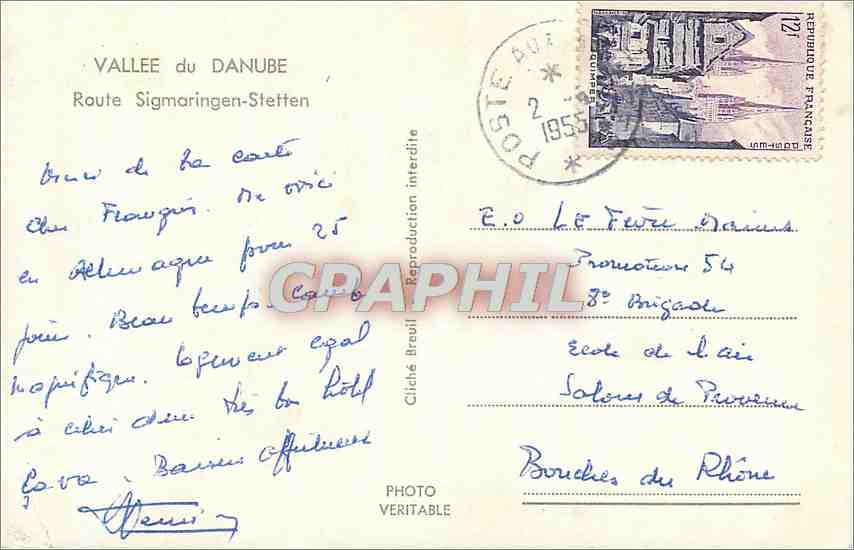 VALLEE du DANUBE
Route Sigmaringen-Stetten
Merci de ta carte
cher François. Me voici
en Allemagne pour 25
jours. Beau temps. Coin
magnifique. Logement égal
à celui d'un très bon hôtel
Ça va. Baisers affectueux
Cliché Breuil Reproduction interdite
PHOTO
VERITABLE
CPAPHIL
POSTE AUX
2
1955
12f
REPUBLIQUE FRANÇAISE
POSTES
QUIMPER
E.O LE
Promotion 54
8e Brigade
Ecole de l'air
Salon de Provence
Bouches du Rhône